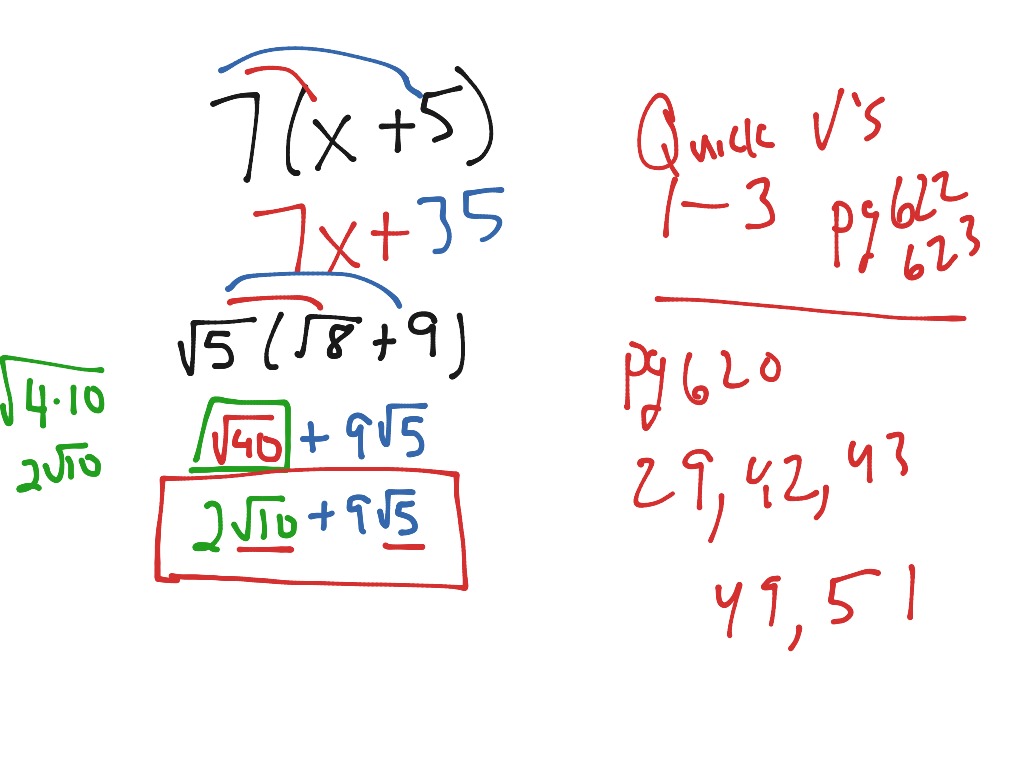 7(x+5)
7x+35
√5(√8+9)
√40+9√5
2√10+9√5
√4·10
2√10
Quick √'s
1-3 pg 622
623
pg 620
29, 42, 43
49, 51